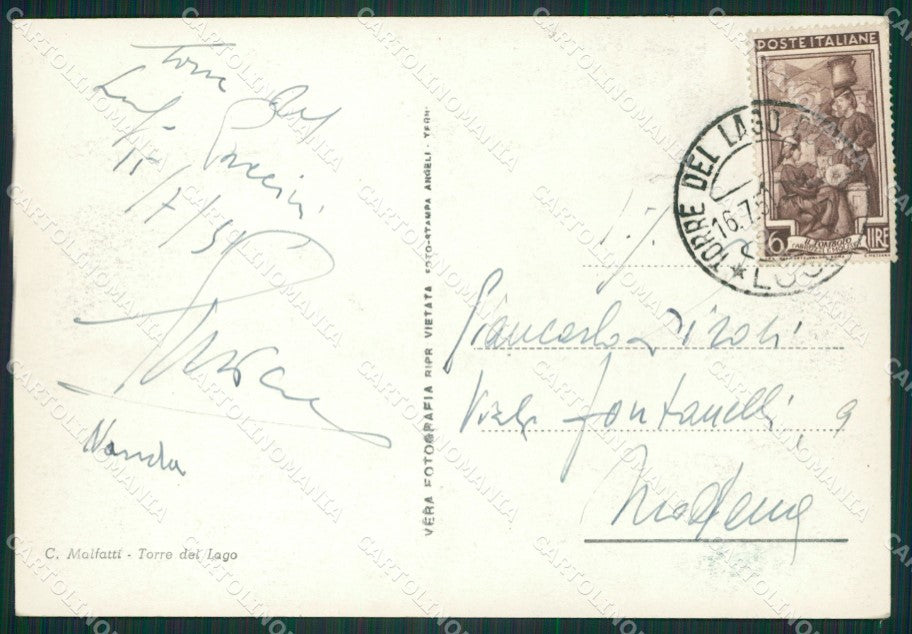 Torre del
Lago
Puccini
15/7/51
Nanda
C. Malfatti - Torre del Lago
VERA FOTOGRAFIA RIPR VIETATA FOTO-STAMPA ANGELI - TERNI
POSTE ITALIANE
6 LIRE
IL TOMBOLO
TORRE DEL LAGO
16.7.5
LUCCA
Giancarlo
Viale Fontanelli, 9
Modena
CARTOLINOMANIA